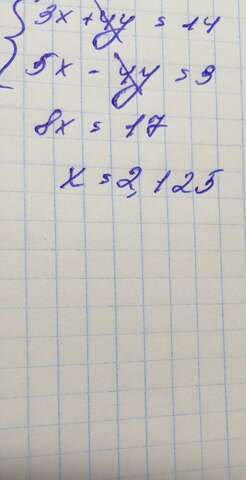 {3x + 4y = 14
5x - 4y = 3
8x = 17
x = 2,125